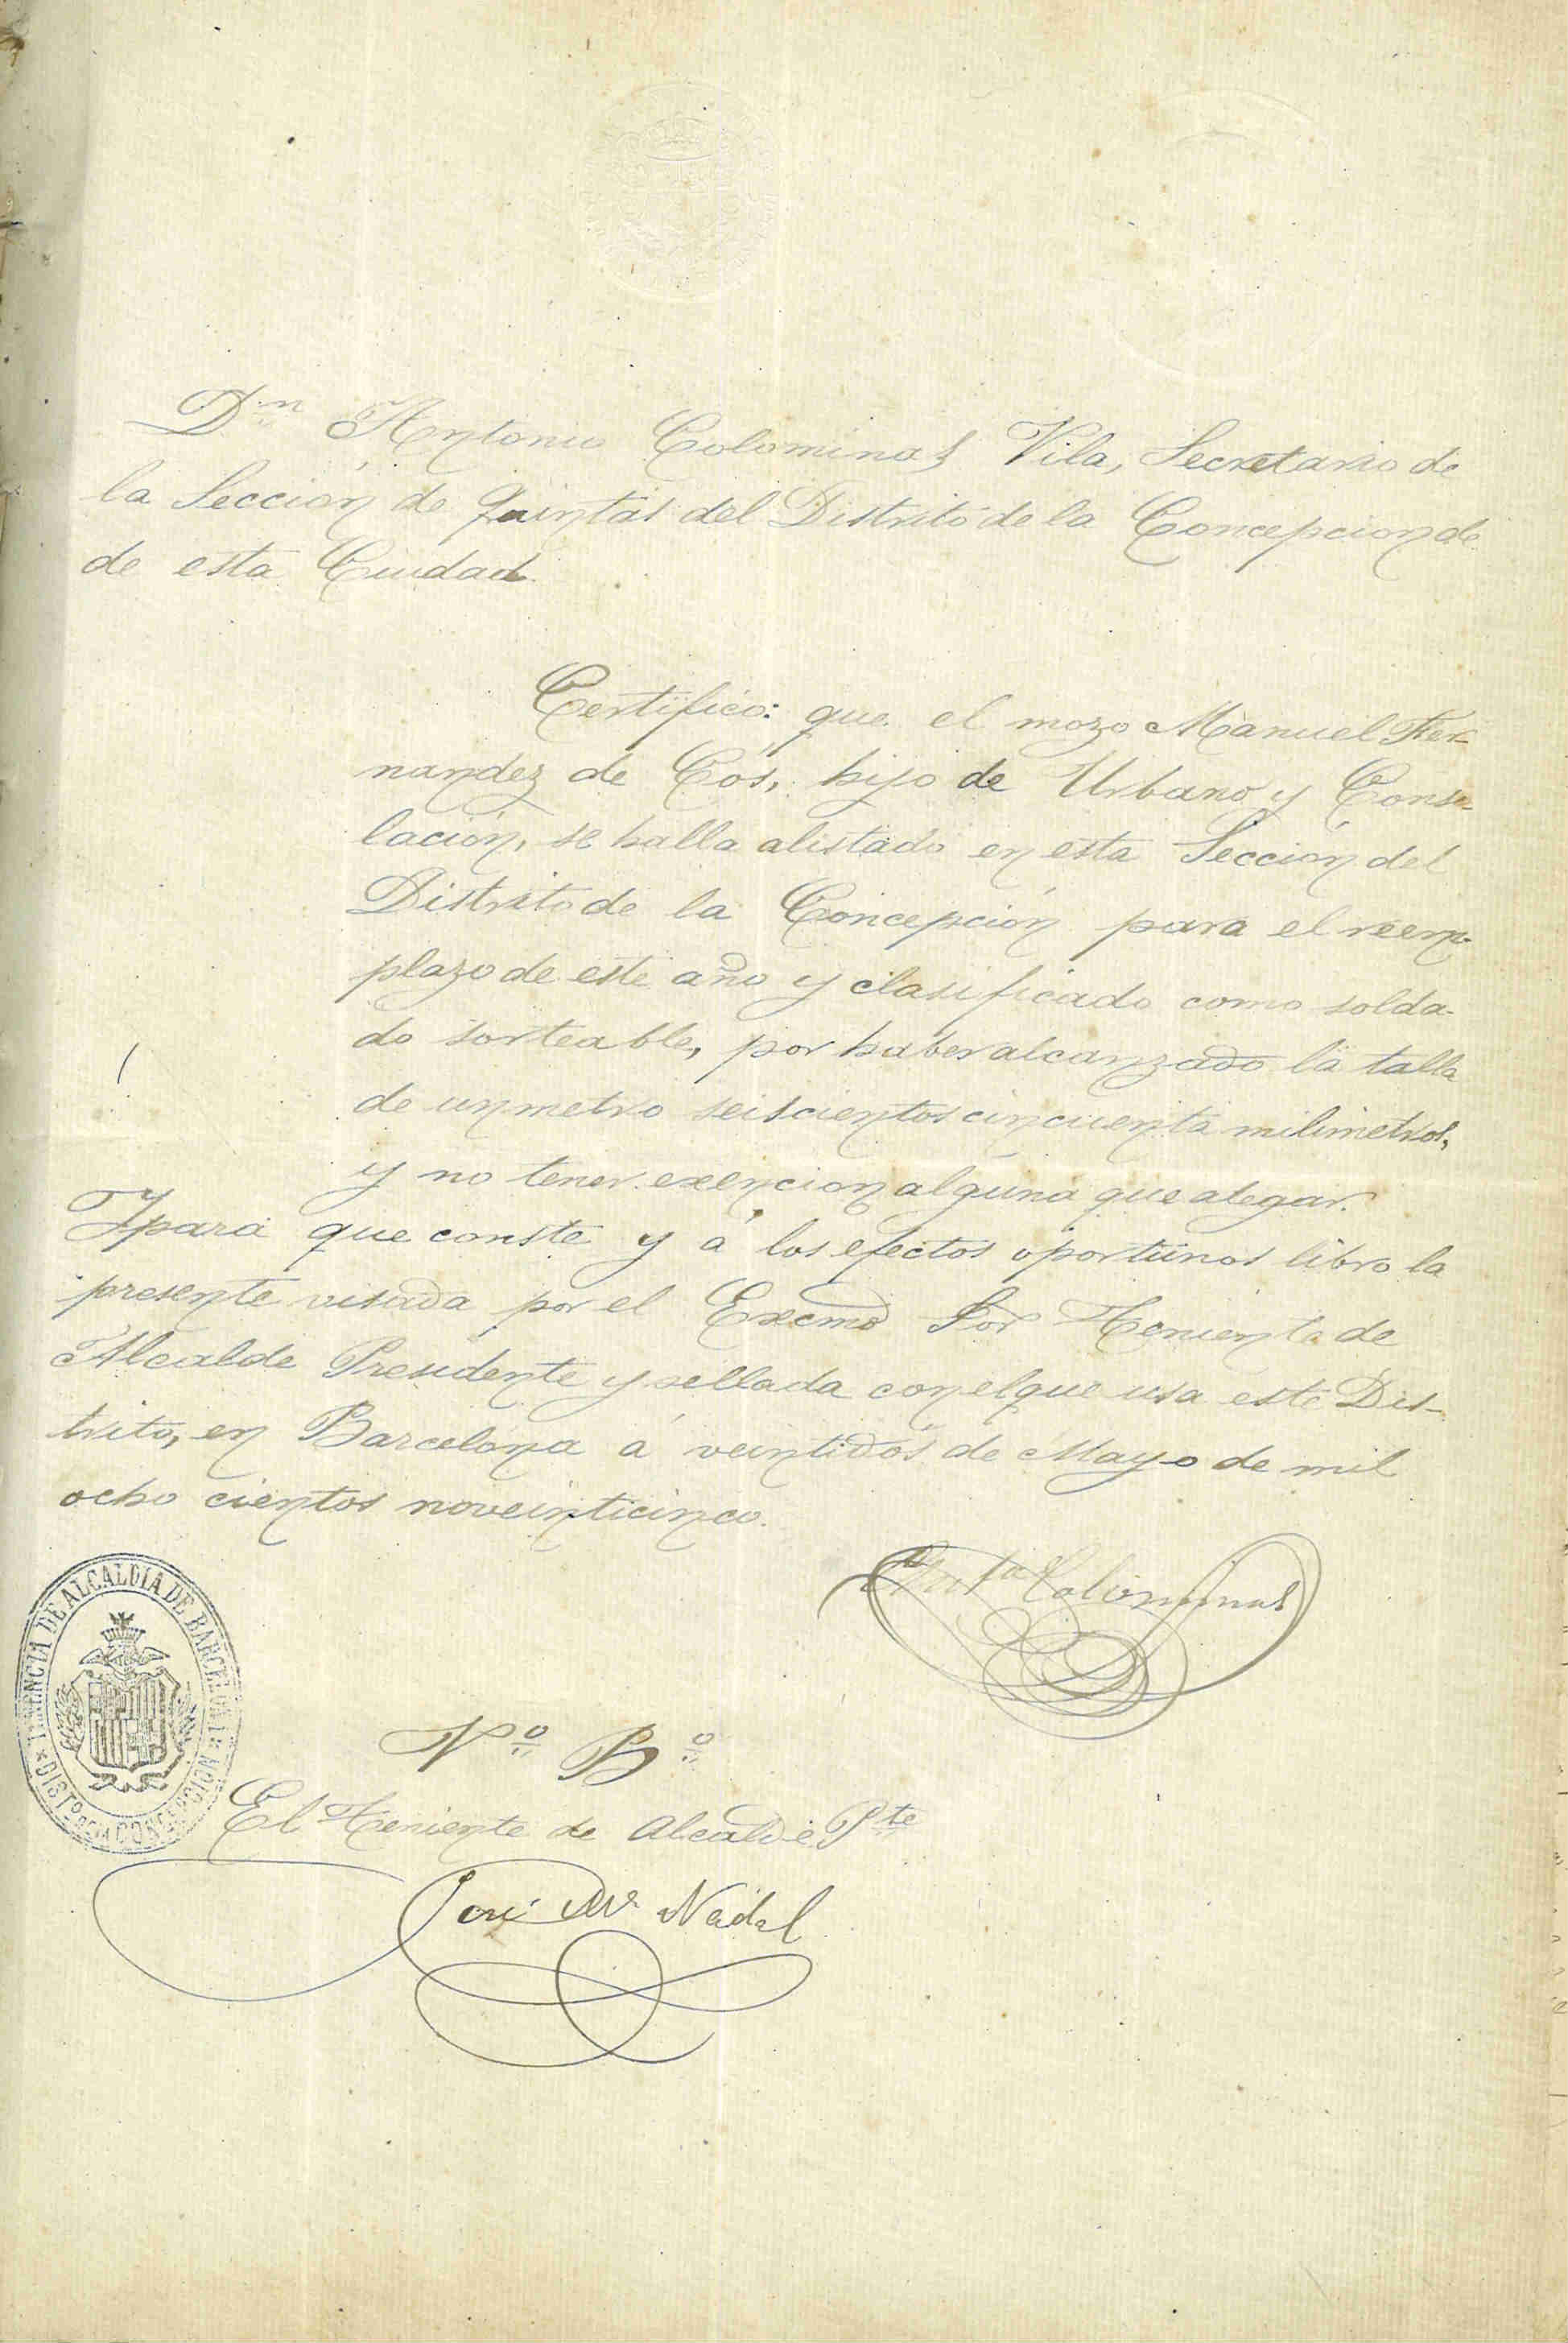 Dn Antonio Colominas Vila, Secretario de
la Seccion de Quintas del Distrito de la Concepcion de
de esta Ciudad.
Certifico: que el mozo Manuel Fer-
nandez de Cos, hijo de Urbano y Conso-
lación, se halla alistado en esta Sección del
Distrito de la Concepción para el reem-
plazo de este año y clasificado como solda-
do sorteable, por haber alcanzado la talla
de un metro seiscientos cincuenta milimetros,
y no tener exencion alguna que alegar.
Y para que conste y á los efectos oportunos libro la
presente visada por el Excmo Sor Teniente de
Alcalde Presidente y sellada con el que usa este Dis-
trito, en Barcelona á veintidos de Mayo de mil
ocho cientos noveinticinco.
Anto Colominas
TENENCIA DE ALCALDIA DE BARCELONA
DISTO DE LA CONCEPCION
Vo Bo
El Teniente de Alcalde Pte
José Ma Nadal